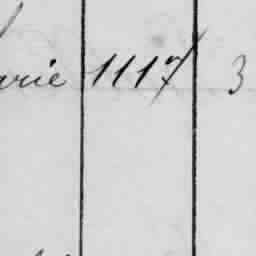 arie 1117 3